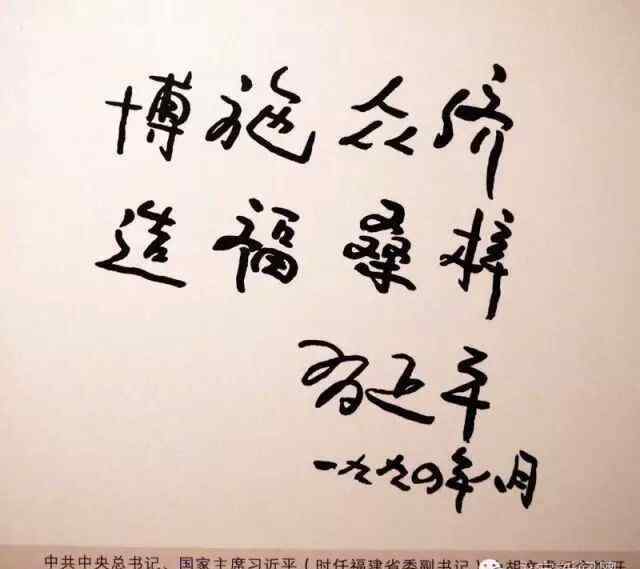 博施众济
造福桑梓
习近平
一九九四年 月
中共中央总书记、国家主席习近平（时任福建省委副书记）